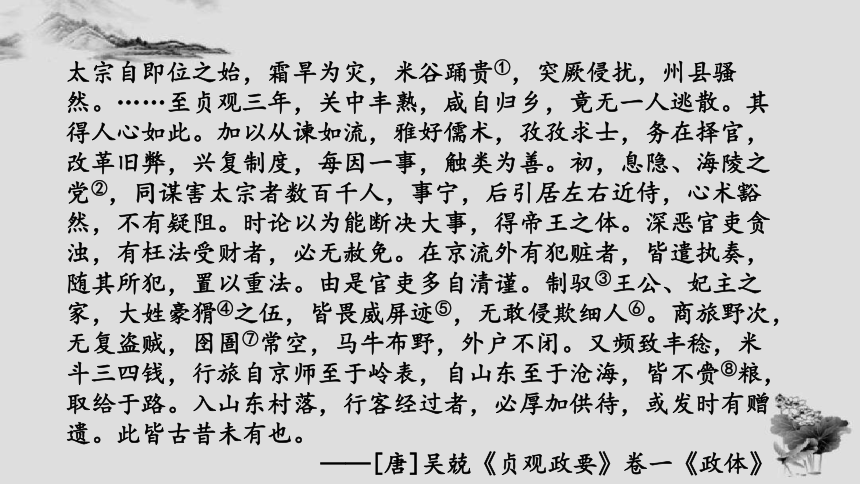 太宗自即位之始，霜旱为灾，米谷踊贵①，突厥侵扰，州县骚
然。……至贞观三年，关中丰熟，咸自归乡，竟无一人逃散。其
得人心如此。加以从谏如流，雅好儒术，孜孜求士，务在择官，
改革旧弊，兴复制度，每因一事，触类为善。初，息隐、海陵之
党②，同谋害太宗者数百千人，事宁，后引居左右近侍，心术豁
然，不有疑阻。时论以为能断决大事，得帝王之体。深恶官吏贪
浊，有枉法受财者，必无赦免。在京流外有犯赃者，皆遣执奏，
随其所犯，置以重法。由是官吏多自清谨。制驭③王公、妃主之
家，大姓豪猾④之伍，皆畏威屏迹⑤，无敢侵欺细人⑥。商旅野次，
无复盗贼，囹圄⑦常空，马牛布野，外户不闭。又频致丰稔，米
斗三四钱，行旅自京师至于岭表，自山东至于沧海，皆不赍⑧粮，
取给于路。入山东村落，行客经过者，必厚加供待，或发时有赠
遗。此皆古昔未有也。
——[唐]吴兢《贞观政要》卷一《政体》